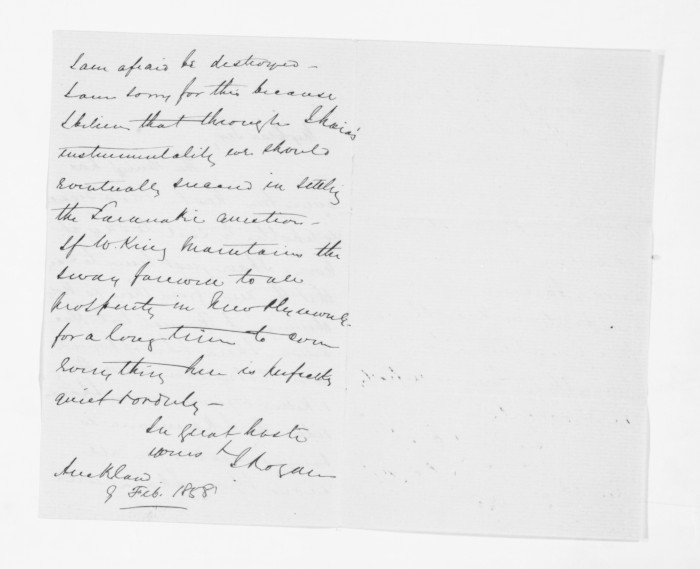 I am afraid be destroyed -
I am sorry for this because
I believe that through Ihaia's
instrumentality we should
eventually succeed in settling
the Taranaki question -
If W. King maintains the
sway farewell to all
prosperity in New Plymouth
for a long time to come
Everything here is perfectly
quiet & orderly -
In great haste
yours
J Rogan
Auckland
9 Feb. 1858